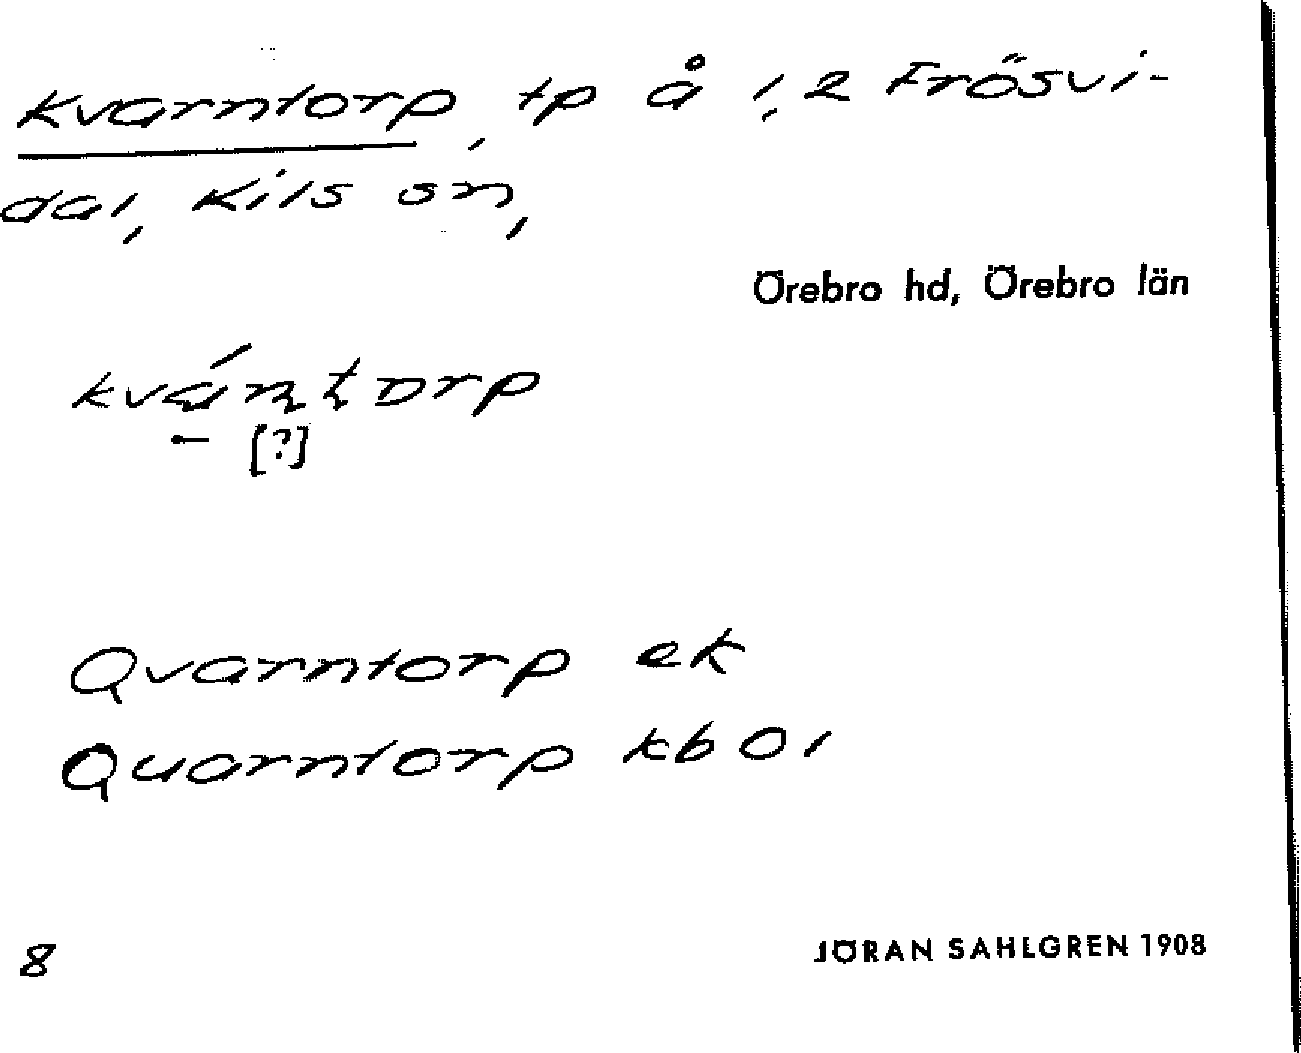 Kvarntorp, tp å 1,2 Frösvi-
dal, Kils sn,
Örebro hd, Örebro län
[?]
Qvarntorp ek
Quarntorp kb 01
8
JÖRAN SAHLGREN 1908